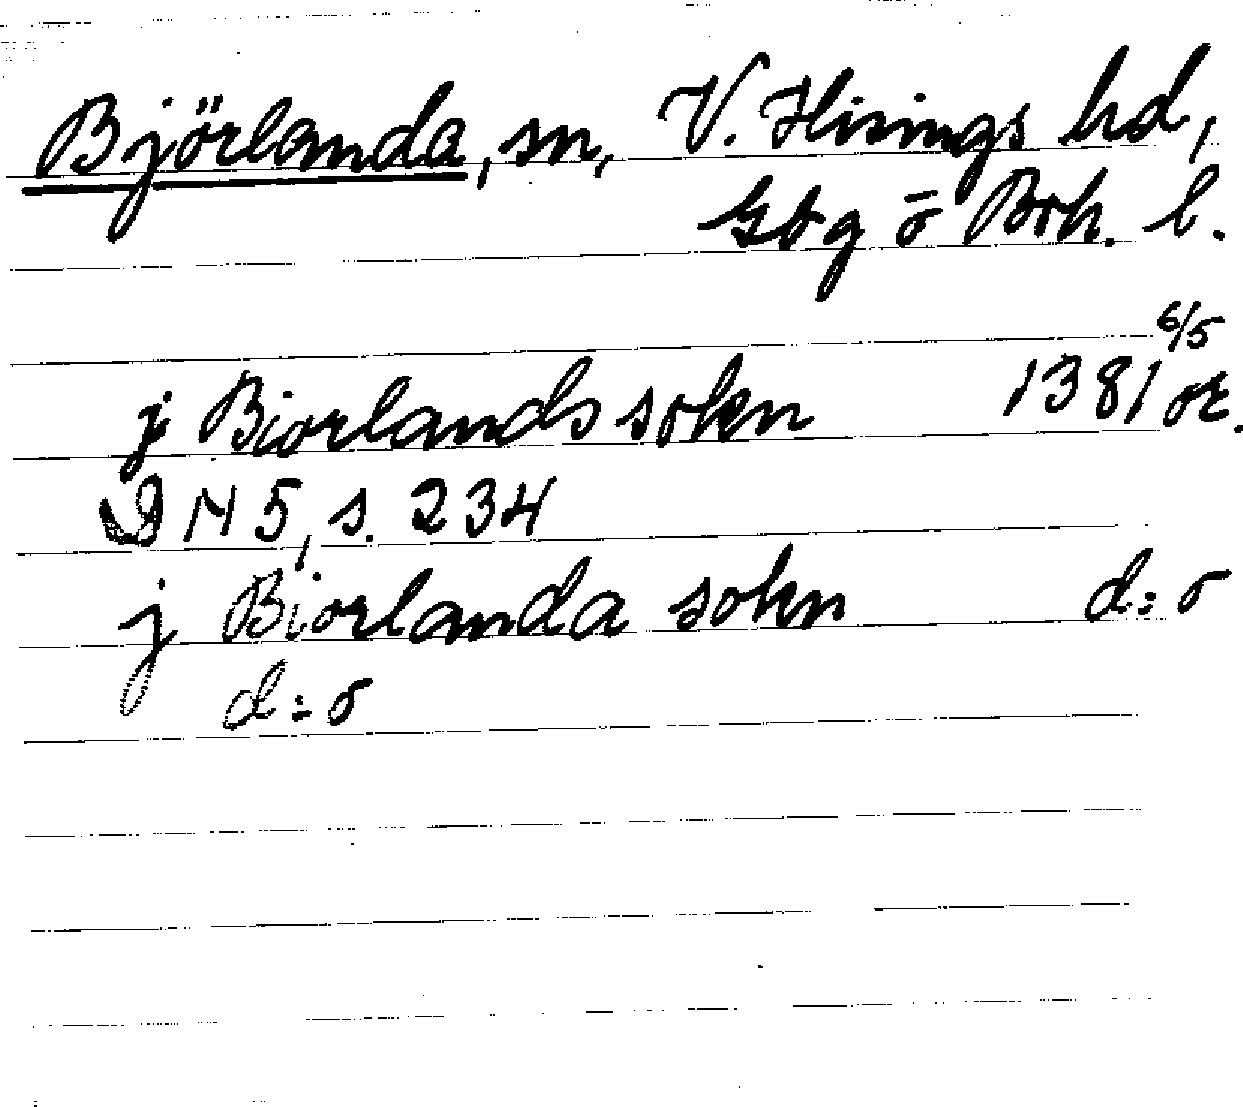 Björlanda, sn, V. Hisings hd,
Gbg o Boh. l.
j Biorlands sokn 1381 6/5 or.
DN 5, s. 234
j Biorlanda sokn d:o
d:o